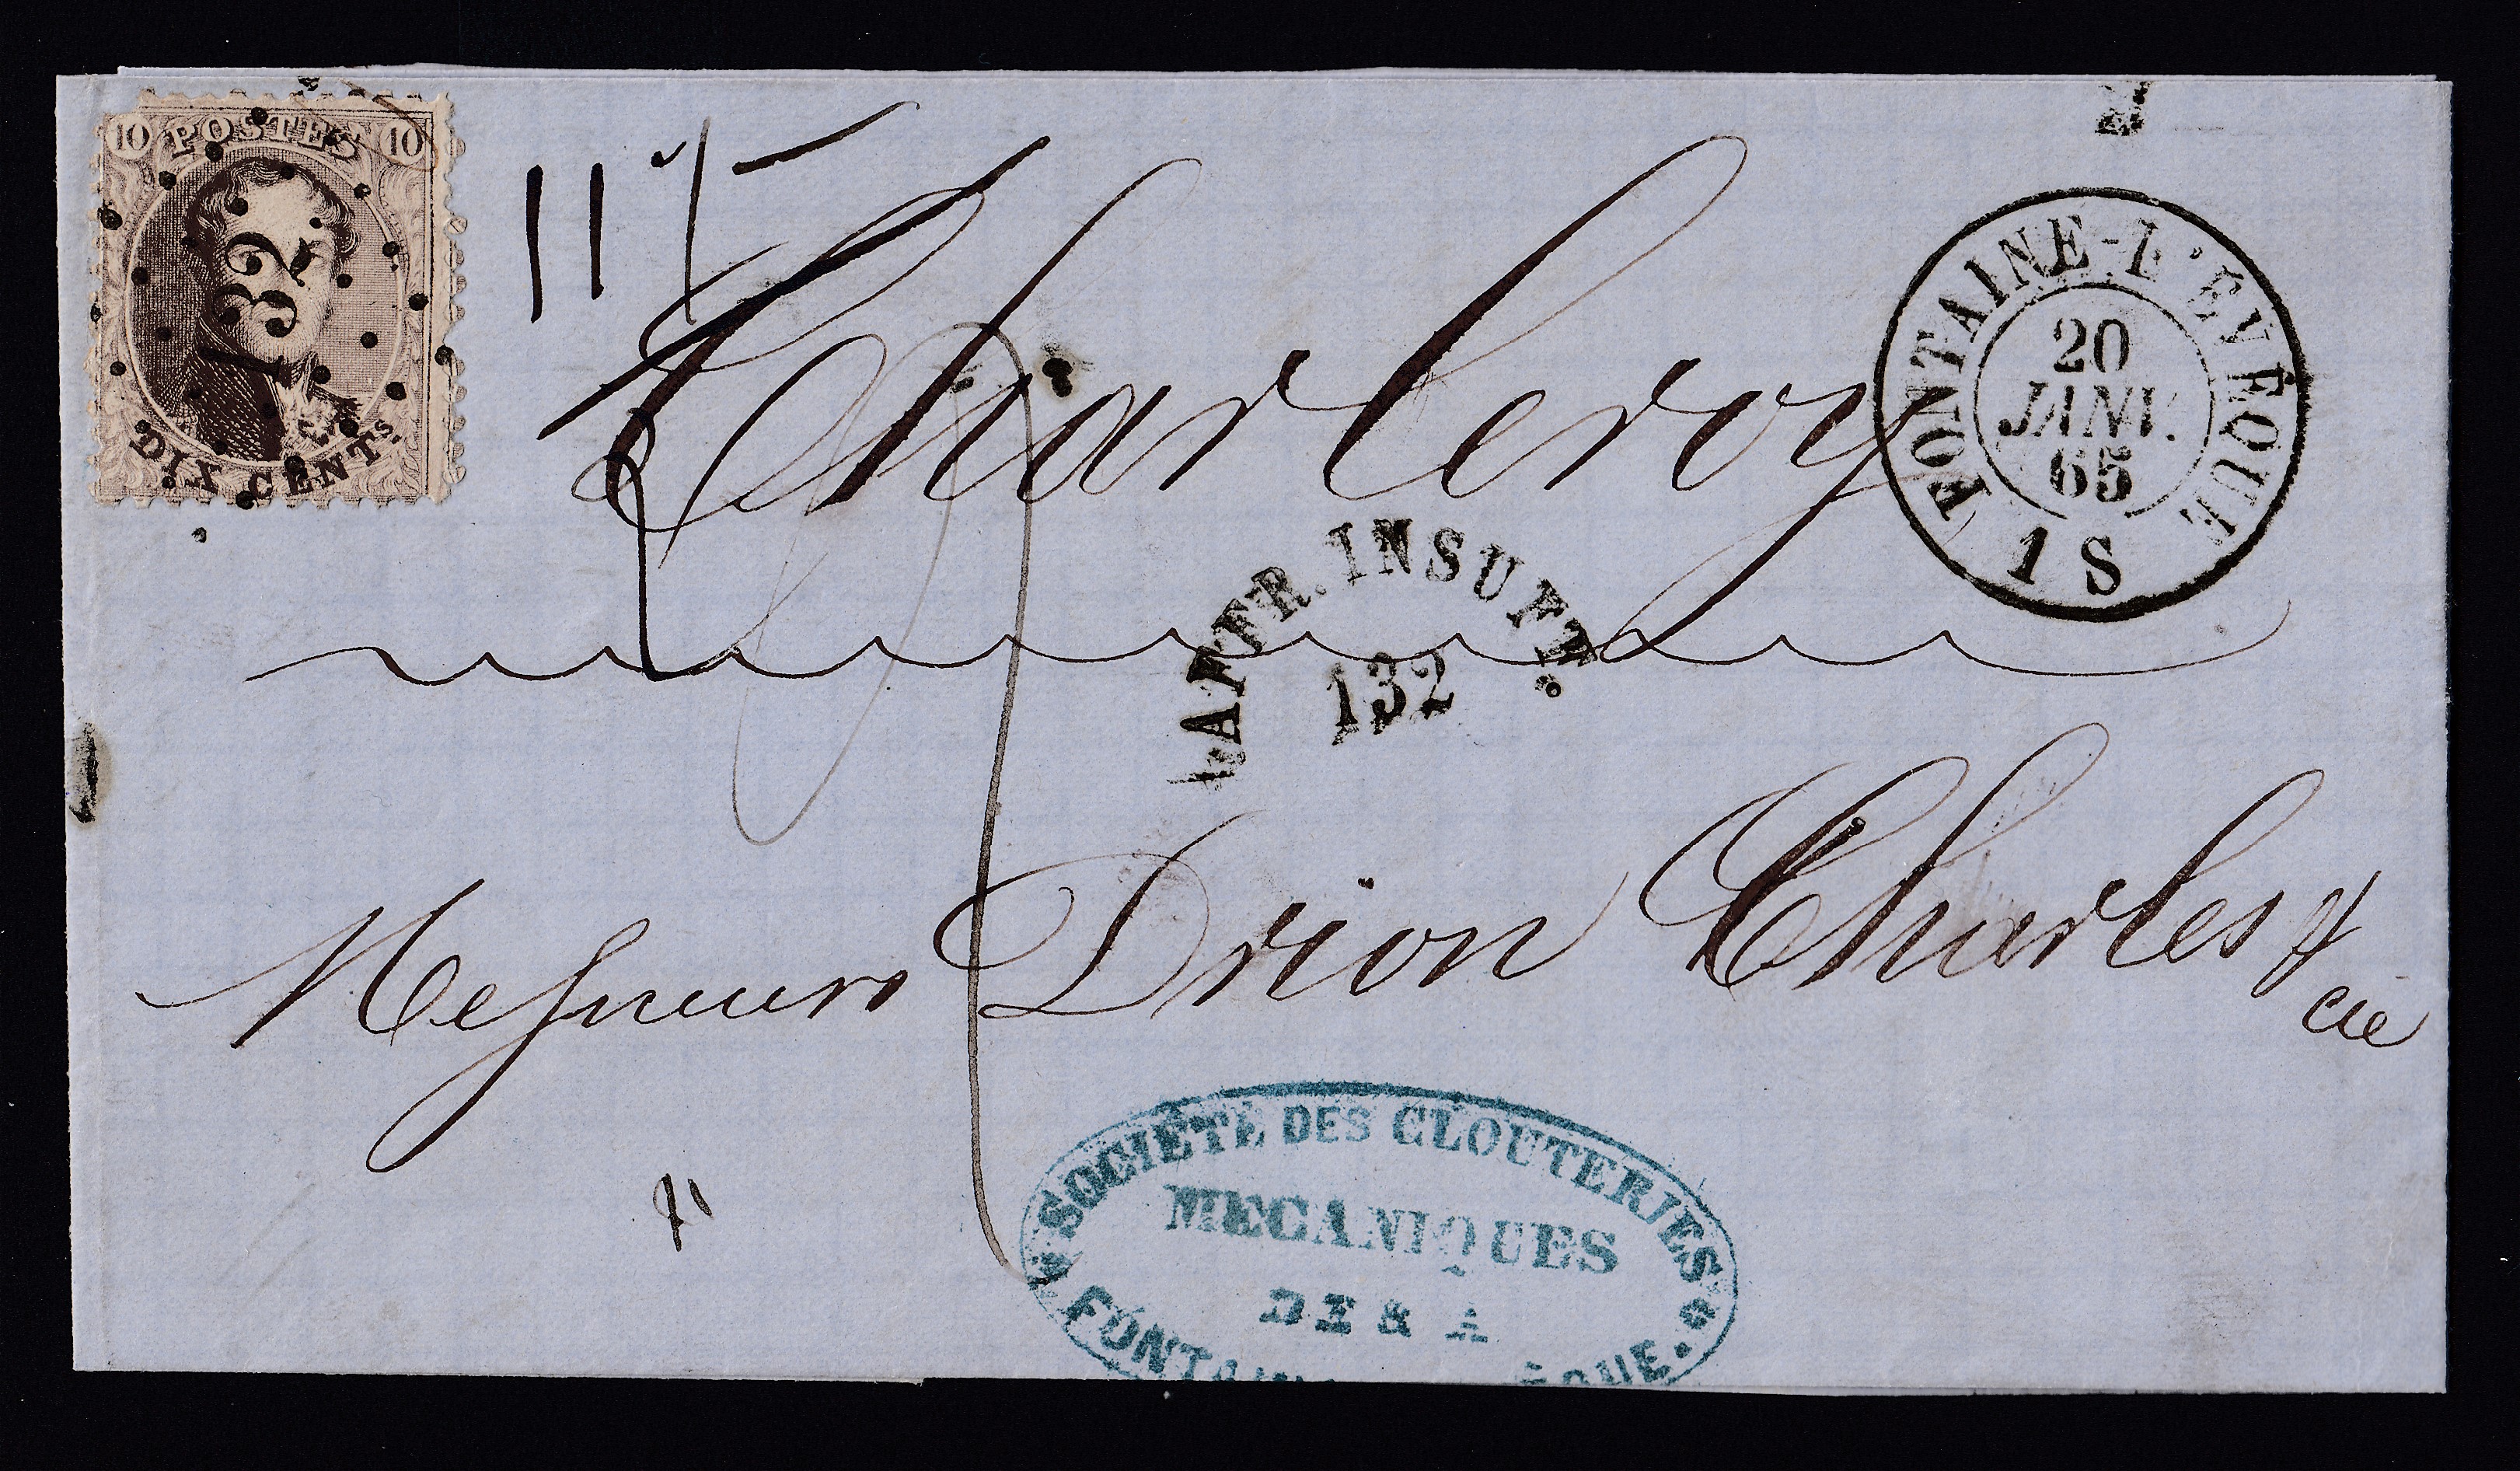 10 POSTES 10
132
DIX CENTS.
11
Charleroy
FONTAINE-L'ÉVÊQUE
20
JANV.
65
1 S
AFFR. INSUFF.
132
Messieurs Drion Charles &
cie
SOCIÉTÉ DES CLOUTERIES
MECANIQUES
DE & A
FONTAIN ÊQUE.